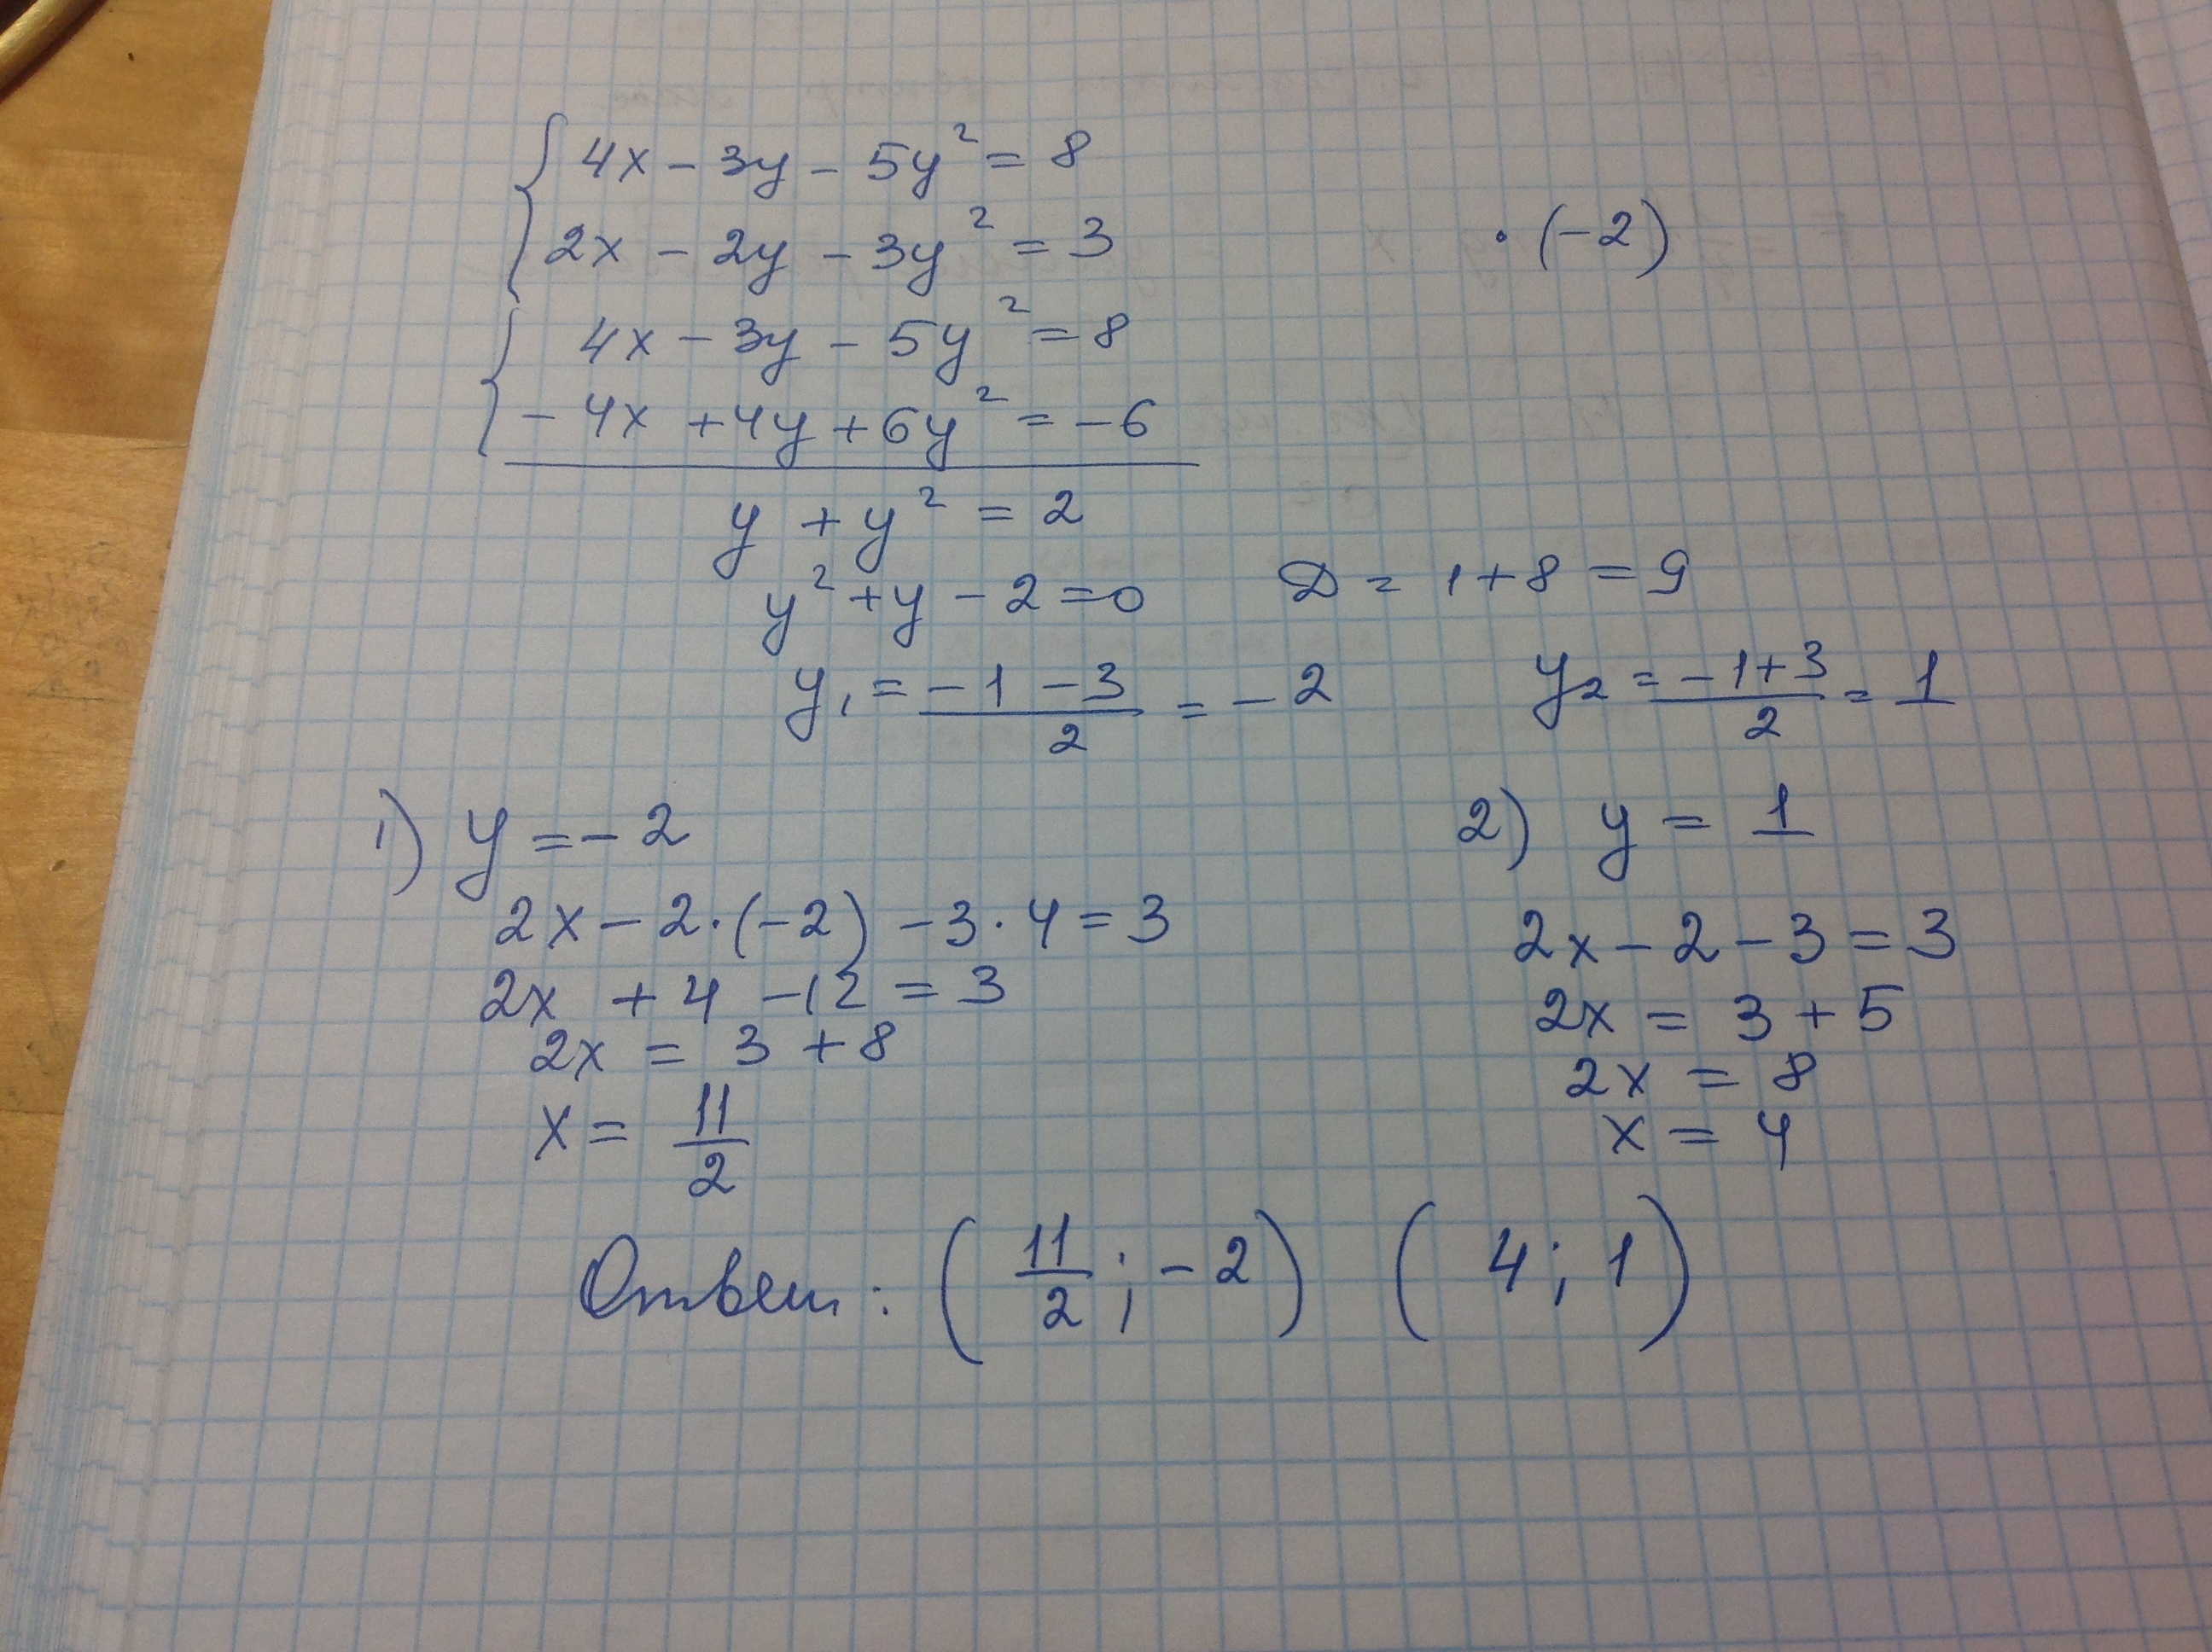 4x - 3y - 5y² = 8
2x - 2y - 3y² = 3 · (-2)
4x - 3y - 5y² = 8
- 4x + 4y + 6y² = -6
y + y² = 2
y² + y - 2 = 0 D = 1 + 8 = 9
y₁ = (-1 - 3)/2 = -2 y₂ = (-1 + 3)/2 = 1
1) y = -2
2x - 2·(-2) - 3·4 = 3
2x + 4 - 12 = 3
2x = 3 + 8
x = 11/2
2) y = 1
2x - 2 - 3 = 3
2x = 3 + 5
2x = 8
x = 4
Ответ: (11/2; -2) (4; 1)